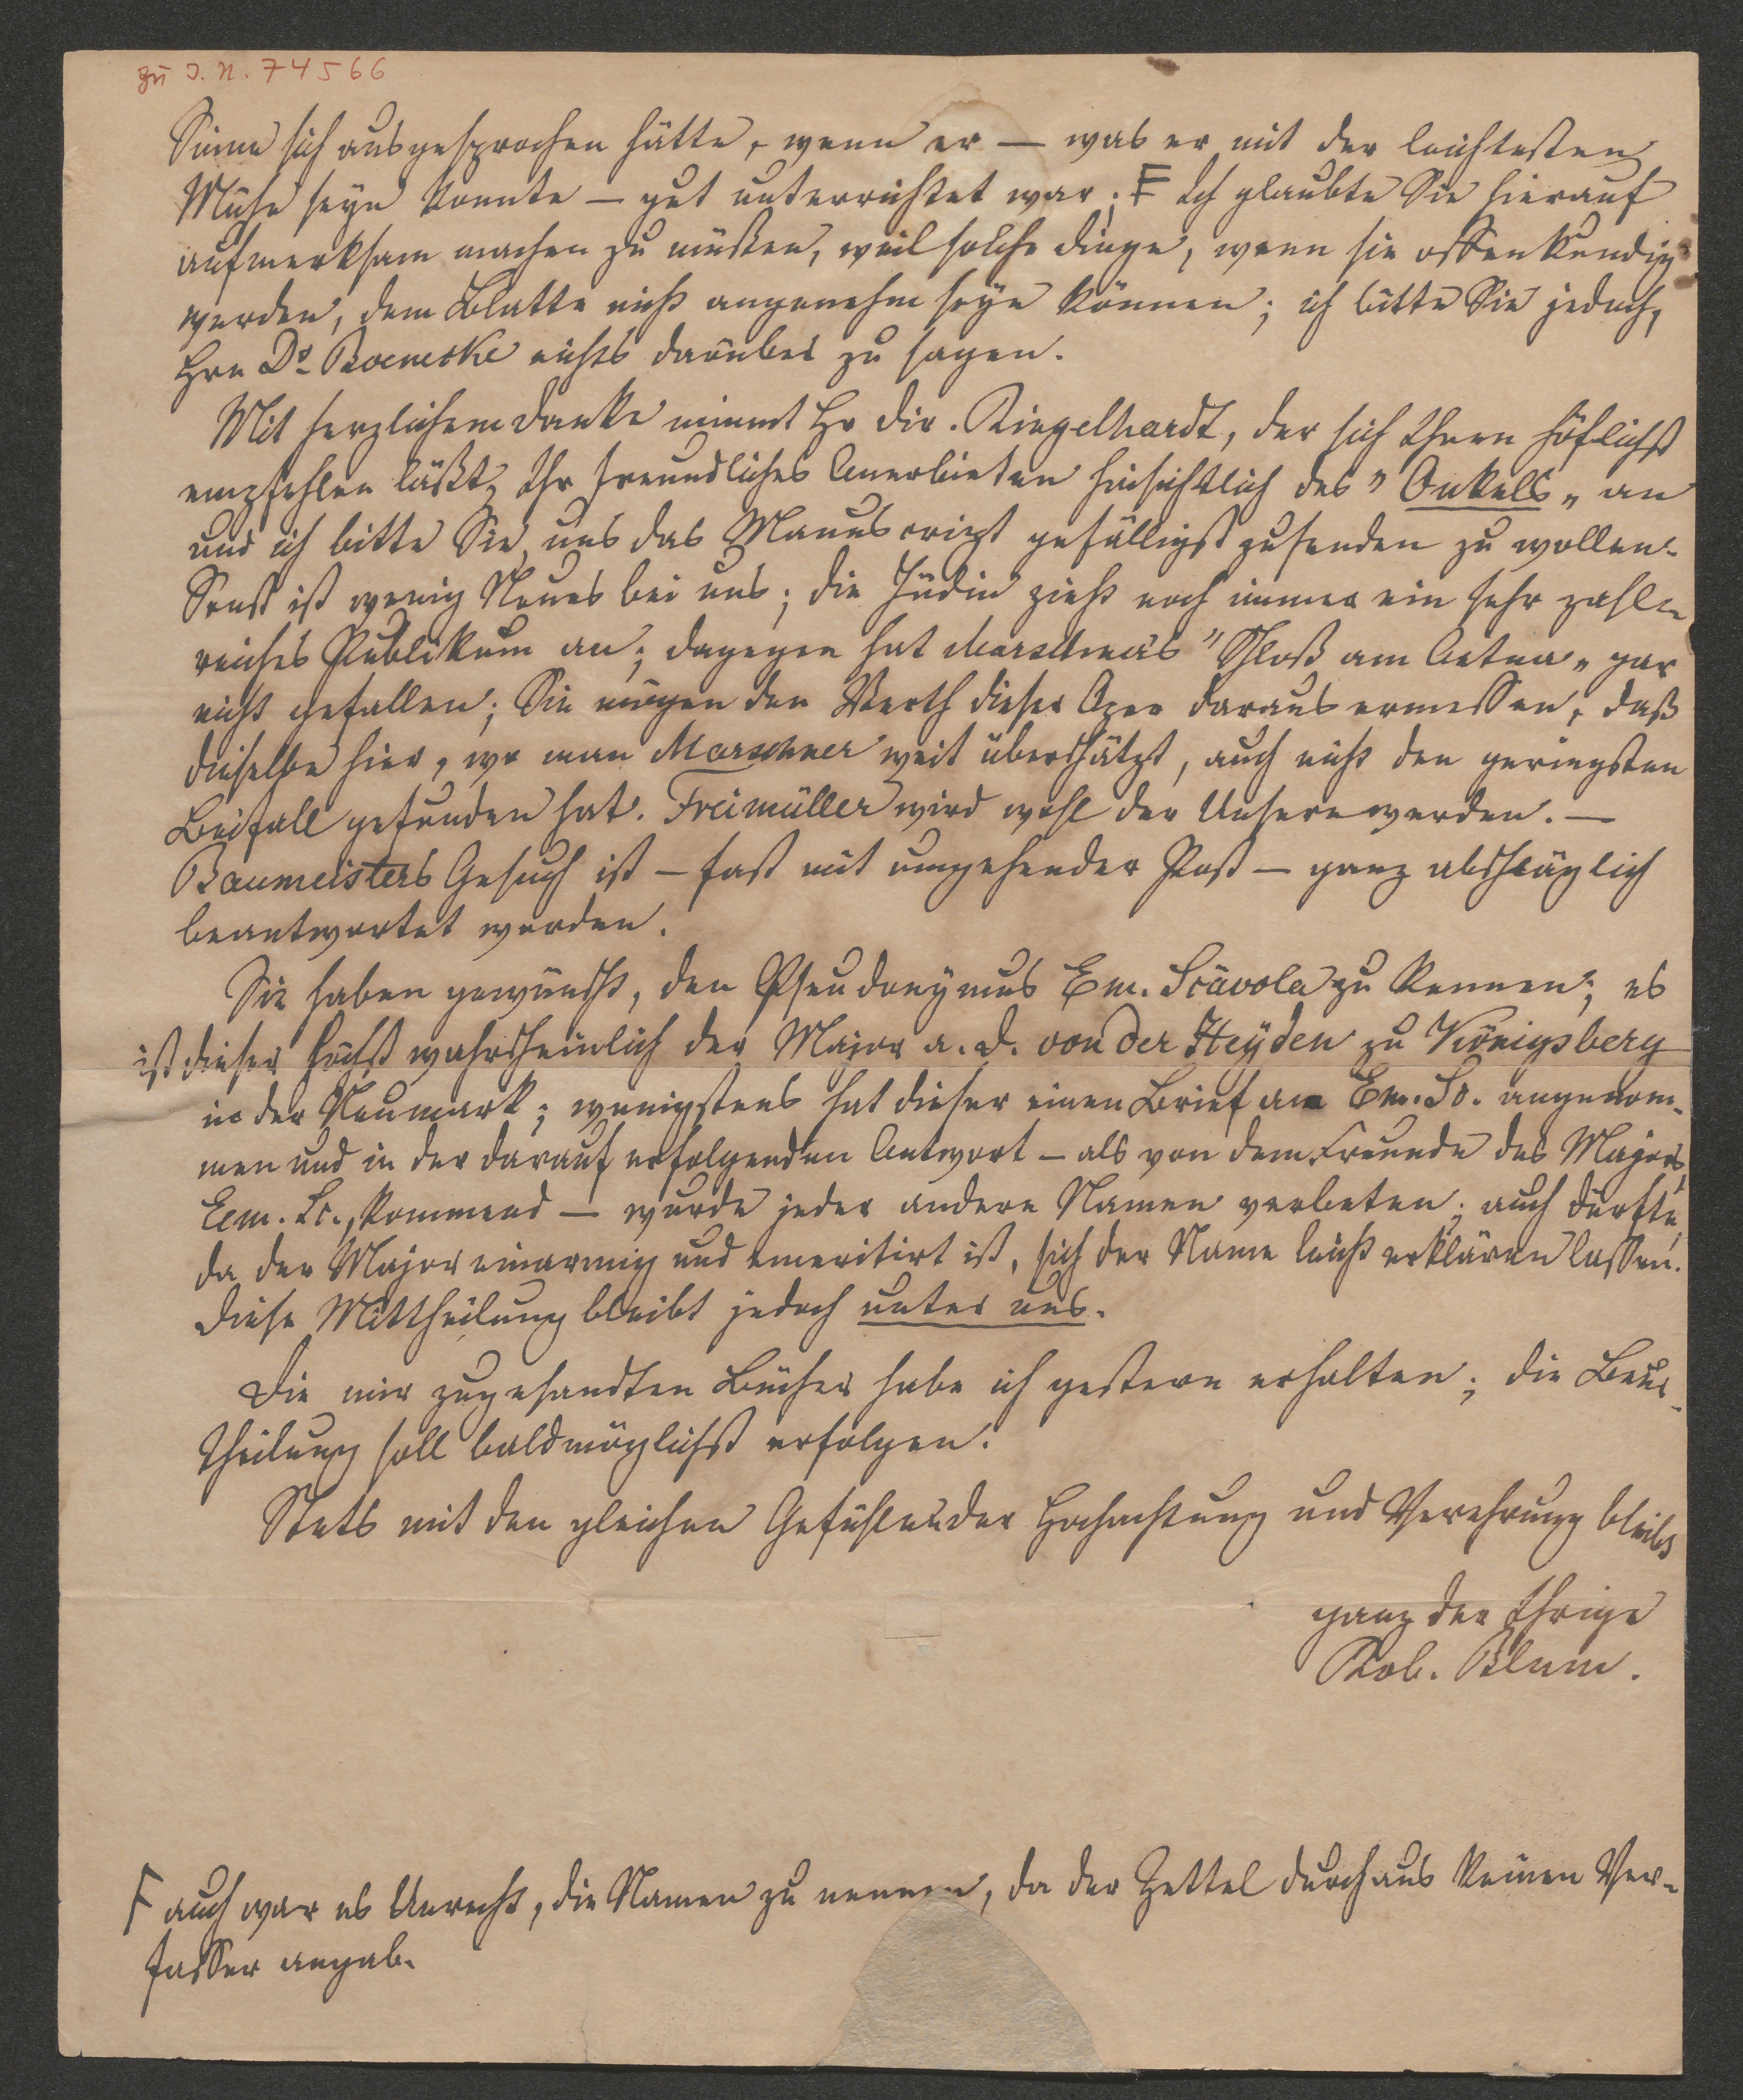 zu I. N. 74566
Sinne sich ausgesprochen hätte, wenn er — was er mit der leichtesten
Mühe seyn konnte — gut unterrichtet war; F Ich glaubte Sie hierauf
aufmerksam machen zu müßen, weil solche Dinge, wenn sie offenkundig
werden, dem Blatte nicht angenehm seyn können; ich bitte Sie jedoch,
Hrn Dr nichts darüber zu sagen.
Mit herzlichem Danke nimmt Hr Dir. Ringelhardt, der sich Ihnen höflichst
empfehlen läßt, Ihr freundliches Anerbieten hinsichtlich des "Onkels" an
und ich bitte Sie, uns das Manuscript gefälligst zusenden zu wollen.
Sonst ist wenig Neues bei uns; die Jüdin zieht noch immer ein sehr zahl-
reiches Publikum an; dagegen hat Marschners "Schloß am Aetna" gar
nicht gefallen; Sie mögen den Werth dieser Oper daraus ermessen, daß
dieselbe hier, wo man Marschner weit überschätzt, auch nicht den geringsten
Beifall gefunden hat. Freimüller wird wohl der Unsere werden. —
Baumeisters Gesuch ist — fast mit umgehender Post — ganz abschläglich
beantwortet worden.
Sie haben gewünscht, den Pseudonymus Em. Scävola zu kennen; es
ist dieser höchst wahrscheinlich der Major a. D. von der Heyden zu Königsberg
in der Neumark; wenigstens hat dieser einen Brief an Em. Sc. angenom-
men und in der darauf erfolgenden Antwort — als von dem Freunde des Majors,
Em. Sc., kommend — wurde jeder andere Namen verbeten; auch dürfte,
da der Major einarmig und emeritirt ist, sich der Name leicht erklären lassen.
Diese Mittheilung bleibt jedoch unter uns.
Die mir zugesandten Bücher habe ich gestern erhalten; die Beur-
theilung soll baldmöglichst erfolgen.
Stets mit den gleichen Gefühlen der Hochachtung und Verehrung bleibt
ganz der Ihrige
Rob. Blum.
F auch war es Unrecht, die Namen zu nennen, da der Zettel durchaus keinen Ver-
fasser angab.